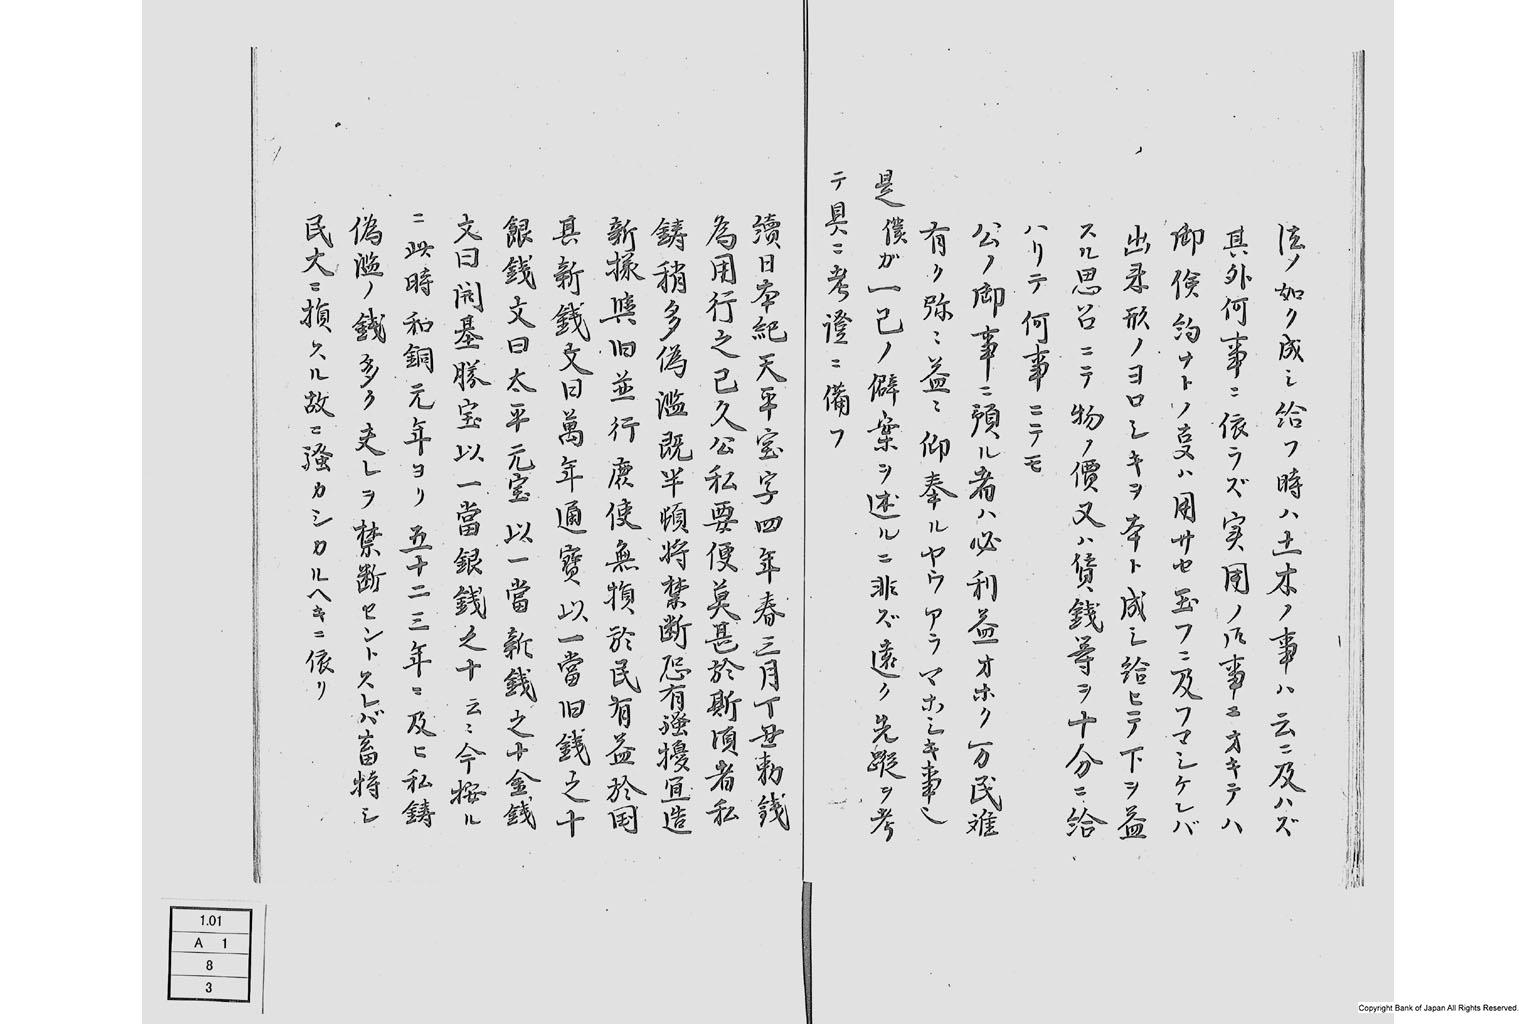 法ノ如ク成シ給フ時ハ土木ノ事ハ云ニ及ハズ
其外何事ニ依ラズ実用ノ所事ニオキテハ
御倹約ナトノ更ハ用サセ玉フニ及フマシケレバ
出来形ノヨロシキヲ本ト成シ給ヒテ下ヲ益
スル思召ニテ物ノ價又ハ賃銭等ヲ十分ニ給
ハリテ何事ニテモ
公ノ御事ニ預ル者ハ必利益オホク万民難
有ク弥ミ益ミ仰奉ルヤウアラマホシキ事也
是僕ガ一己ノ僻案ヲ述ルニ非ズ遠ク先蹤ヲ考
テ具ニ考證ニ備フ
續日本紀天平宝字四年春三月丁丑勅銭
為用行之已久公私要便莫甚於斯頃者私
鋳稍多偽濫既半頓将禁断恐有騒擾宜造
新様與旧並行庶使無損於民有益於国
其新銭文曰萬年通寳以一當旧銭之十
銀銭文曰太平元宝以一當新銭之十金銭
文曰開基勝宝以一當銀銭之十云ミ今按ル
ニ此時和銅元年ヨリ五十二三年ニ及ヒ私鋳
偽濫ノ銭多ク夫レヲ禁断セントスレバ畜持シ
民大ニ損スル故ニ騒カシカルヘキニ依リ
1.01
A 1
8
3
Copyright Bank of Japan All Rights Reserved.